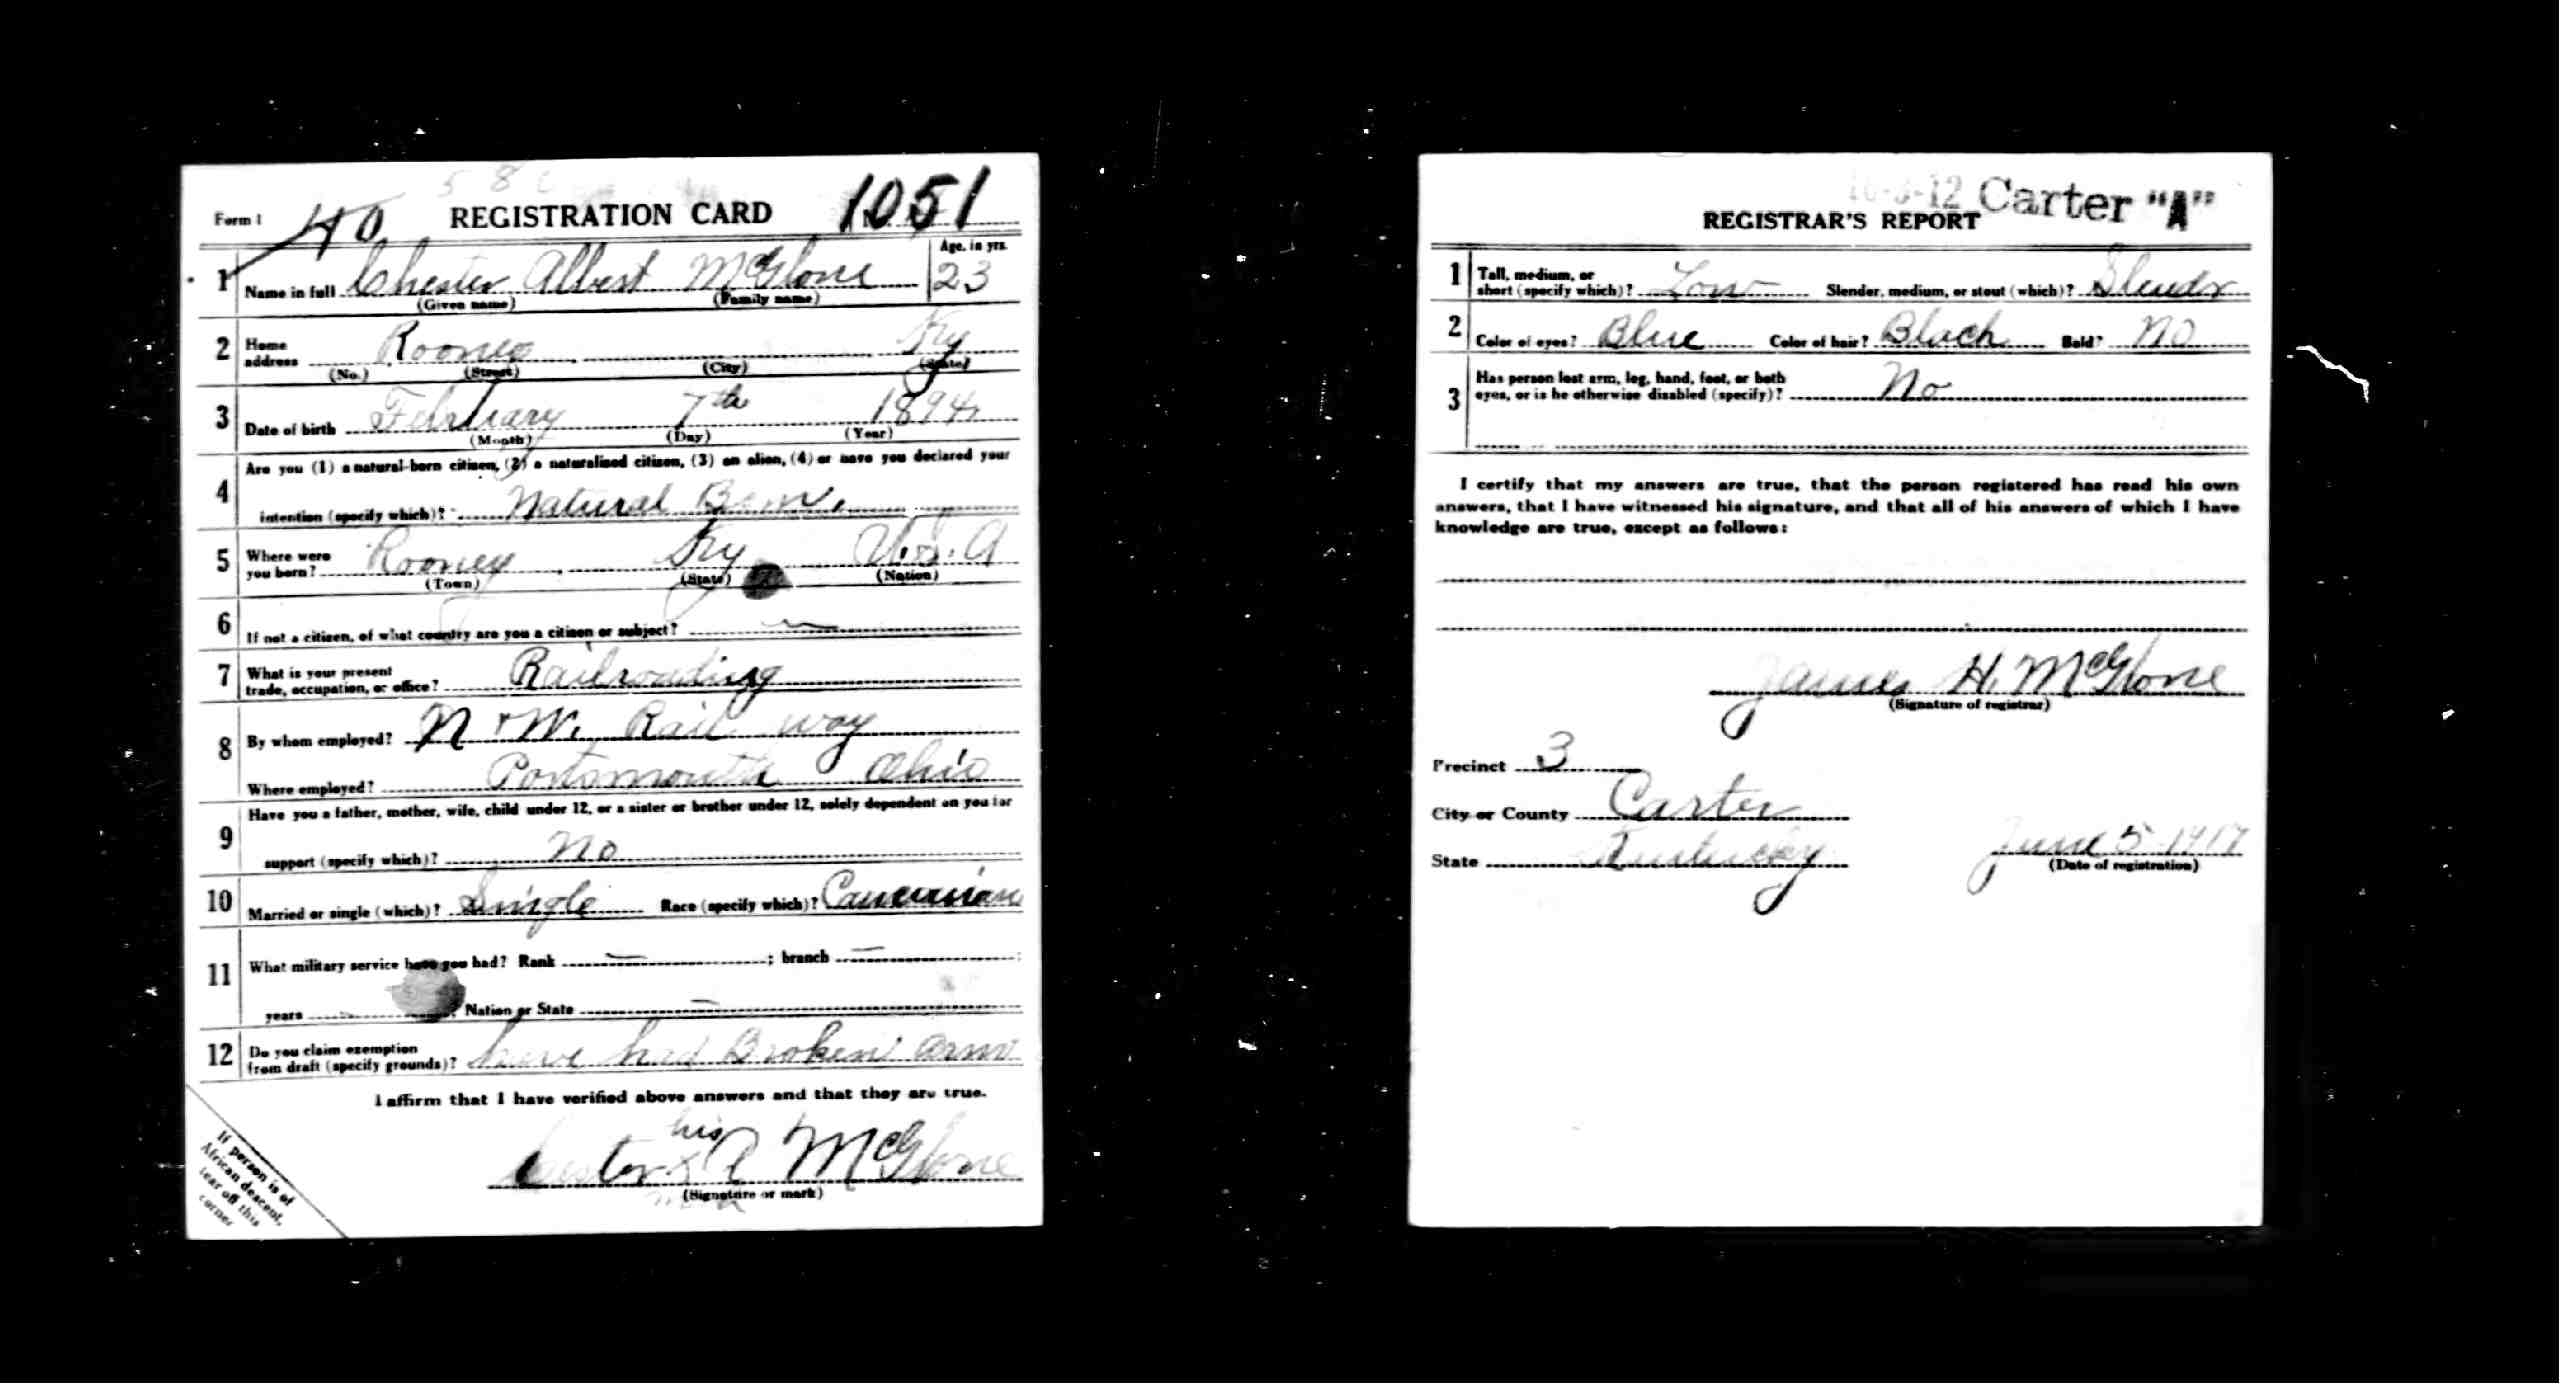 Form 1 40 REGISTRATION CARD 1051
1 Name in full Chester Albert McGlone Age, in yrs. 23
(Given name) (Family name)
2 Home address Rooney Ky
(No.) (Street) (City) (State)
3 Date of birth February 7th 1894
(Month) (Day) (Year)
4 Are you (1) a natural-born citizen, (2) a naturalized citizen, (3) an alien, (4) or have you declared your
intention (specify which)? Natural Born
5 Where were you born? Rooney Ky U.S.A
(Town) (State) (Nation)
6 If not a citizen, of what country are you a citizen or subject?
7 What is your present
trade, occupation, or office? Railroading
8 By whom employed? N & W. Rail way
Where employed? Portsmouth Ohio
9 Have you a father, mother, wife, child under 12, or a sister or brother under 12, solely dependent on you for
support (specify which)? No
10 Married or single (which)? Single Race (specify which)? Caucasian
11 What military service have you had? Rank — ; branch — ;
years Nation or State —
12 Do you claim exemption
from draft (specify grounds)? have had Broken arm
I affirm that I have verified above answers and that they are true.
his
Chester x A McGlone
(Signature or mark)
mark
If person is of
African descent,
tear off this
corner
Carter "A"
REGISTRAR'S REPORT
1 Tall, medium, or
short (specify which)? Low Slender, medium, or stout (which)? Slender
2 Color of eyes? Blue Color of hair? Black Bald? No
3 Has person lost arm, leg, hand, foot, or both
eyes, or is he otherwise disabled (specify)? No
I certify that my answers are true, that the person registered has read his own
answers, that I have witnessed his signature, and that all of his answers of which I have
knowledge are true, except as follows:
James H. McGlone
(Signature of registrar)
Precinct 3
City or County Carter
State Kentucky June 5-1917
(Date of registration)